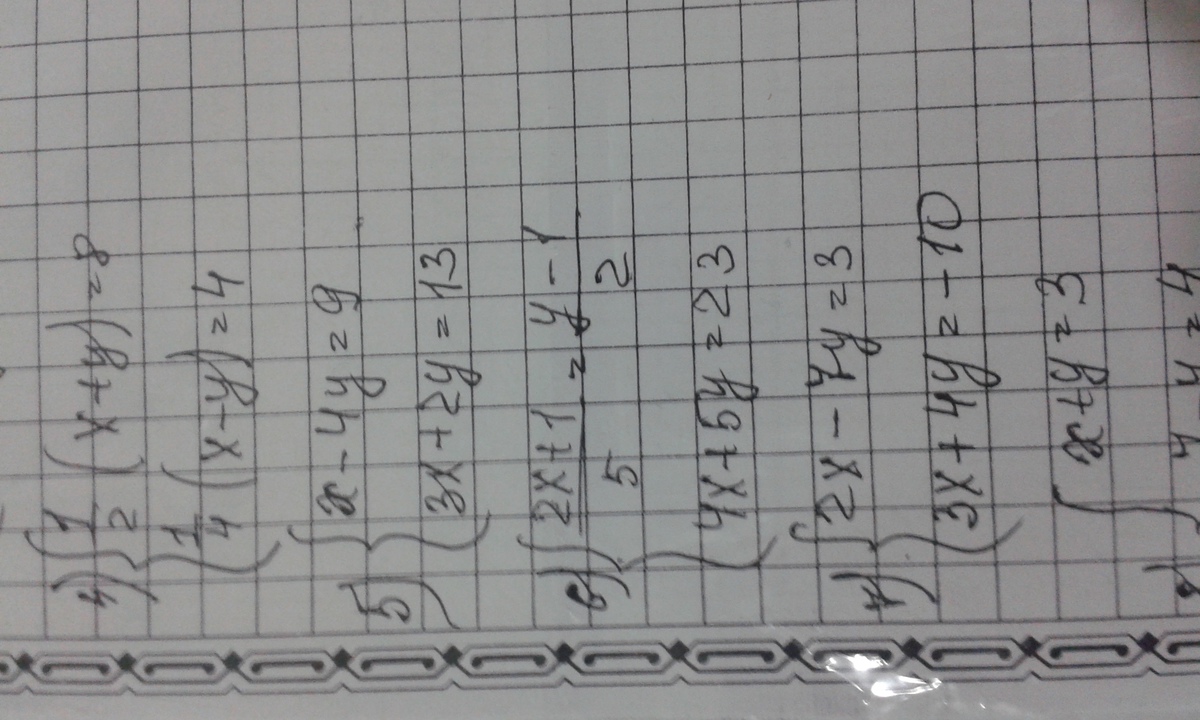 4) { 1/2 (x+y) = 8
1/4 (x-y) = 4
5) { x - 4y = 9
3x + 2y = 13
6) { (2x+1)/5 = (y-1)/2
4x + 5y = 23
7) { 2x - 7y = 3
3x + 4y = -10
8) { x + y = 3